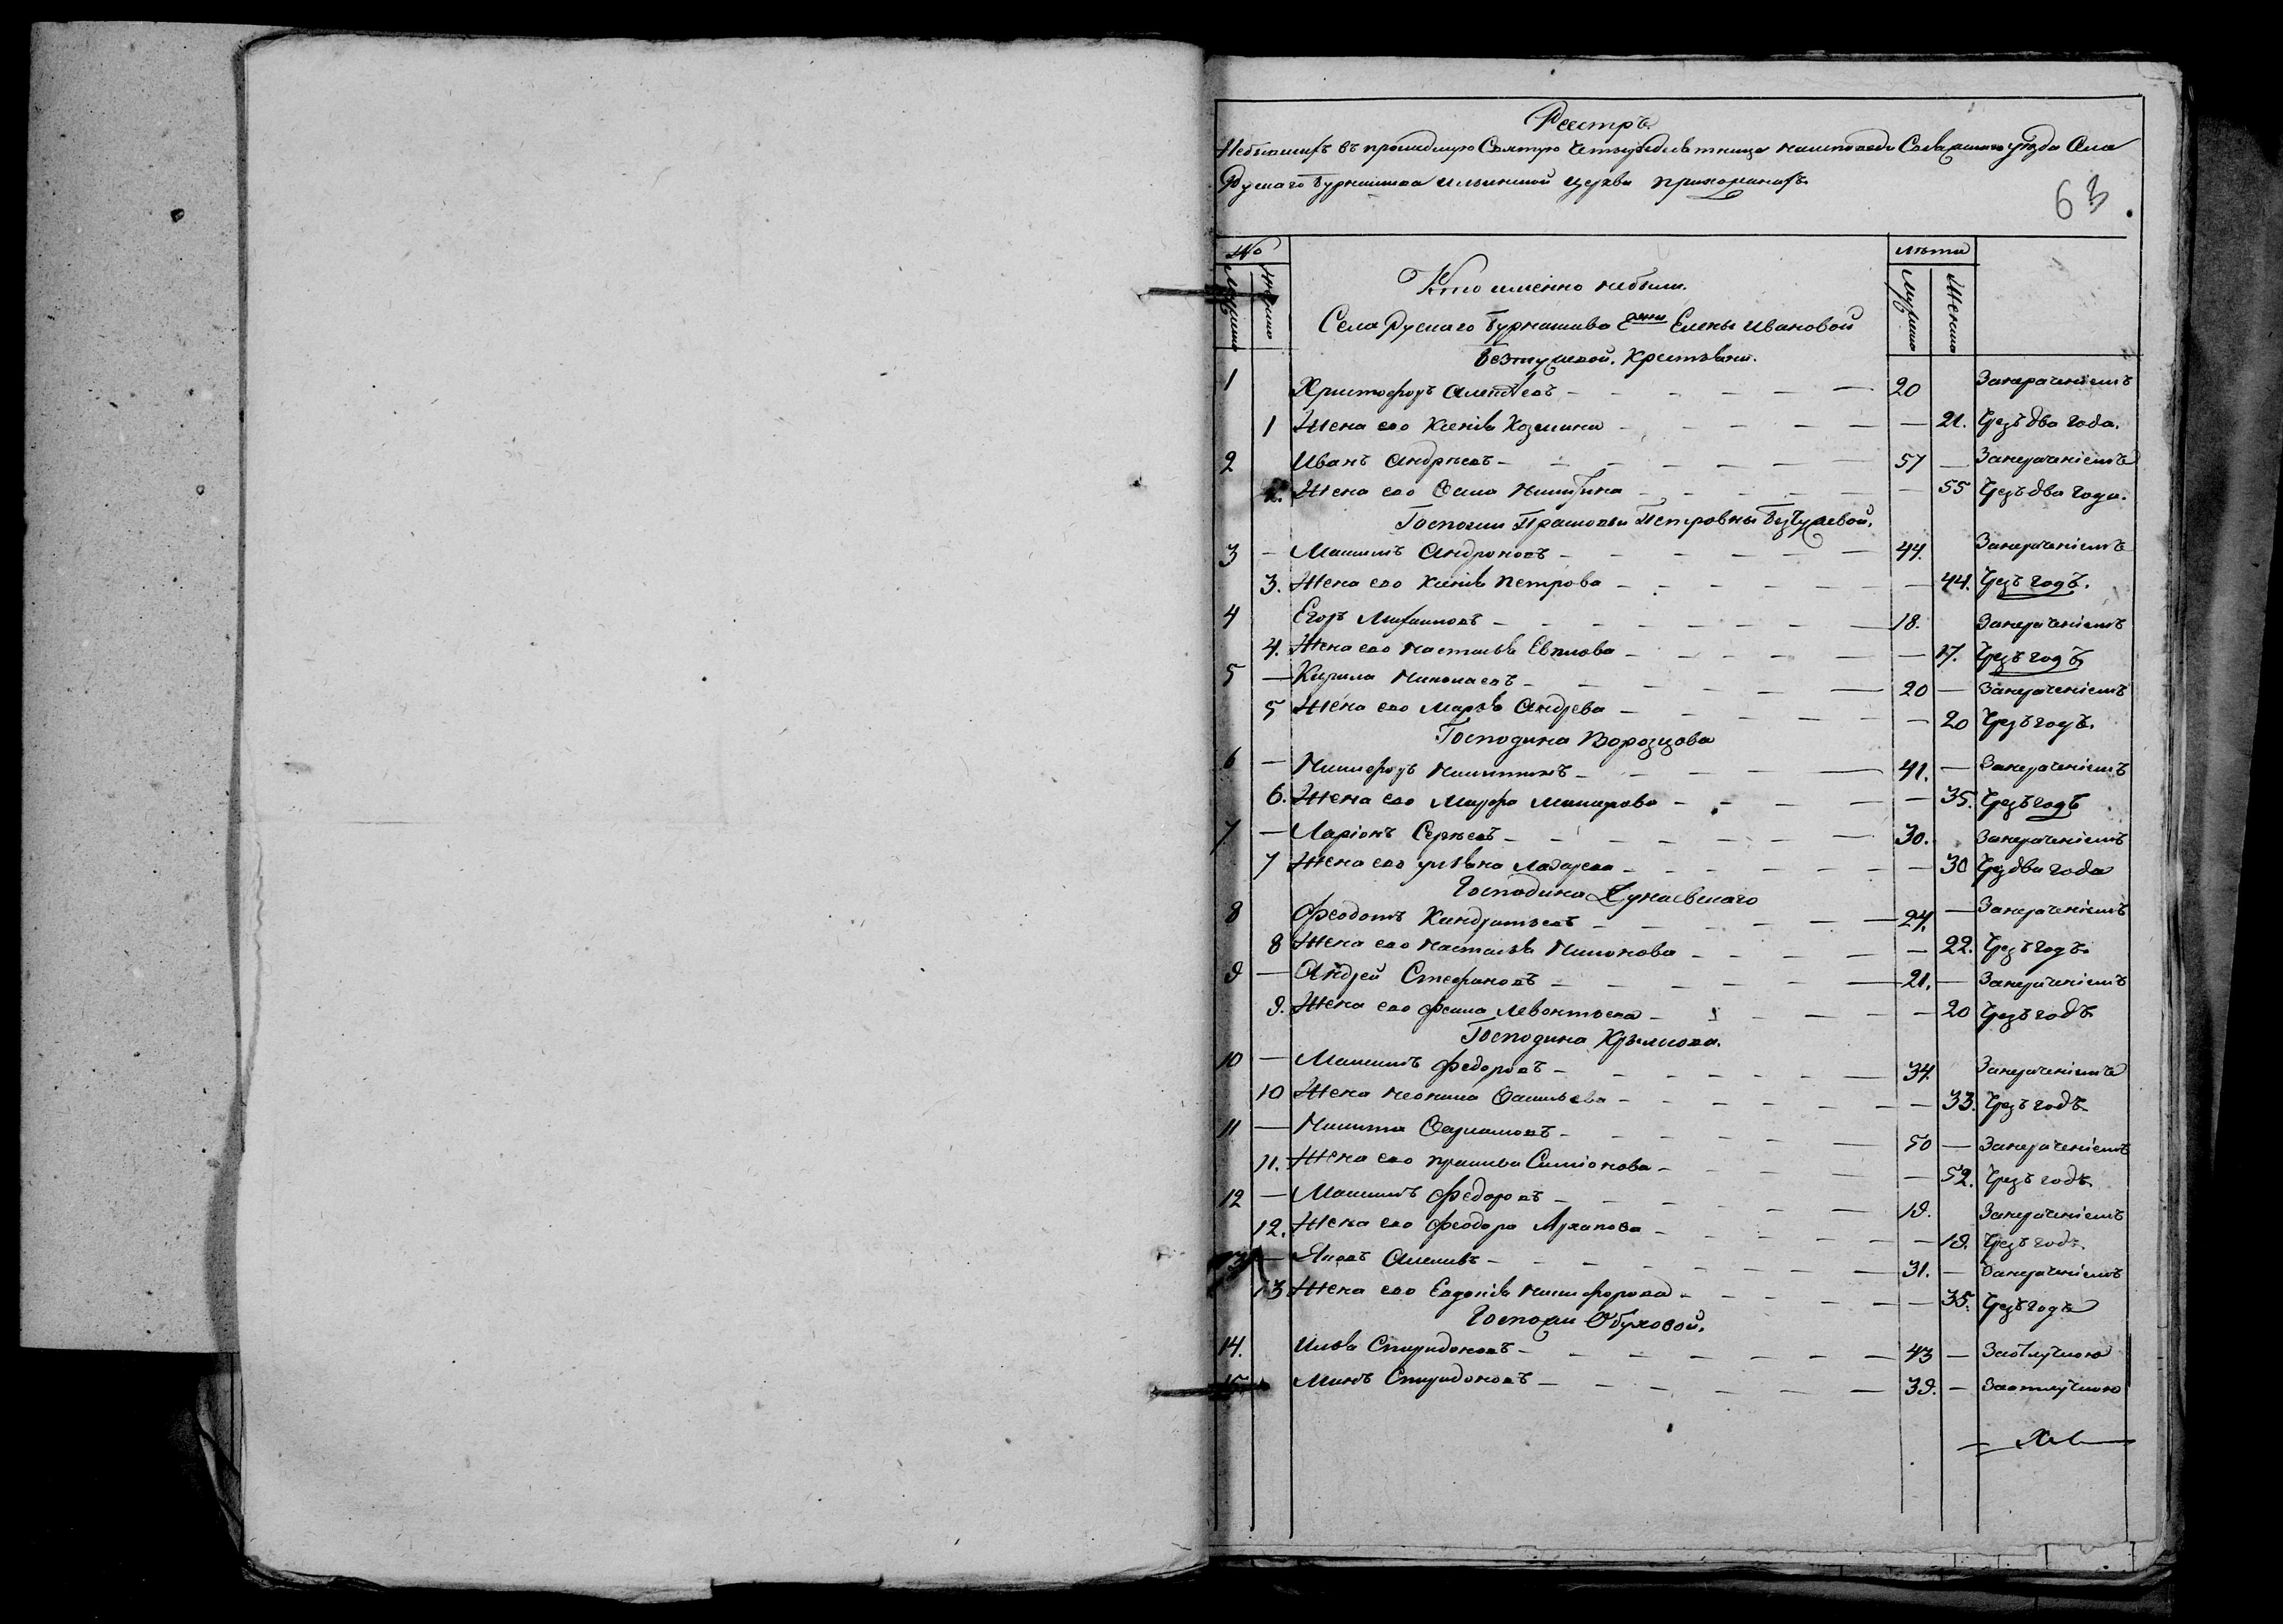 Реестръ
Небывшихъ въ прошедшую Святую Четыредесятницу наисповеди Свiяжскаго уѣзда Села
Рускаго Бурнашева Ильинской церкви прихожанахъ.
63
№ Лѣта
Мужеска Женска Кто именно небыли. Мужеска Женска
Села Рускаго Бурнашева Елены Ивановой
крестьяни.
1 Христофоръ Алексѣевъ 20 Занераченiемъ
1 Жена ево Ксенiя Козмина 21. Чрезъ два года.
2 Иванъ Андрѣевъ 57 Занераченiемъ
2. Жена ево Никитина 55 Чрезъ два года.
Госпожи Прасковьи Петровны
3 Максимъ Андроновъ 44. Занераченiемъ
3. Жена ево Ксенiя Петрова 44. Чрезъ годъ.
4 Егоръ 18. Занераченiемъ
4. Жена ево Настасья 17. Чрезъ годъ
5 Кирила Николаевъ 20 Занераченiемъ
5 Жена ево Марья Андрева 20 Чрезъ годъ.
Господина Ворозцова
6 Никифоръ Никитинъ 41. Занераченiемъ
6. Жена ево Марфа Макарова 35. Чрезъ годъ
7 Ларiонъ Сергѣевъ 30. Занераченiемъ
7 Жена ево Ульяна Лазарева 30 Чрез два года
Господина Дунаевскаго
8 Феодотъ Кандратьевъ 24. Занераченiемъ
8 Жена ево Настасья 22. Чрезъ годъ.
9 Андрей Стефановъ 21. Занераченiемъ
9. Жена ево Левонтьева 20 Чрезъ годъ
Господина
10 Максимъ Федоровъ 34. Занераченiемъ
10 Жена Неонила Васильева 33. Чрезъ годъ
11 Никита 50 Занераченiемъ
11. Жена ево Симiонова 52. Чрезъ годъ.
12 Максимъ Федоровъ 19. Занераченiемъ
12. Жена ево Феодора 19. Чрезъ годъ.
13 Яковъ 31. Занераченiемъ
13 Жена ево Евдокiя Никифорова 35. Чрезъ годъ
Госпожи Обуховой.
14. Илья Спиридоновъ 43 Заотлучкою
15. Спиридоновъ 39. Заотлучкою